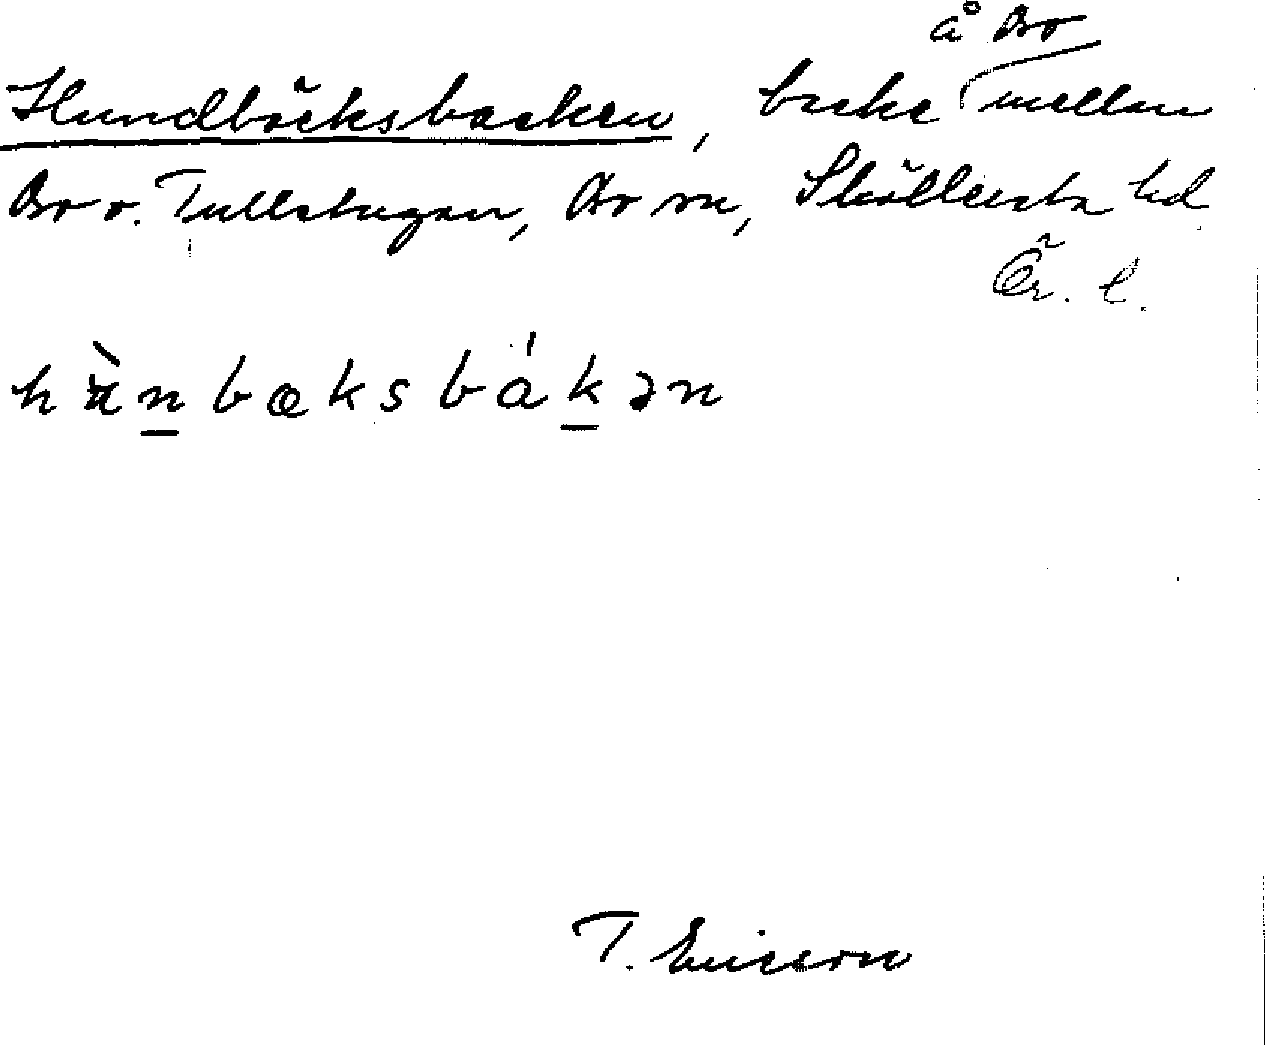 å Bro
Hundböcksbacken, backe mellan
Bro o. Tullstugan, Bro sn, Sköllersta hd
Ör. l.
hùnbœksbákən
T. Ericson